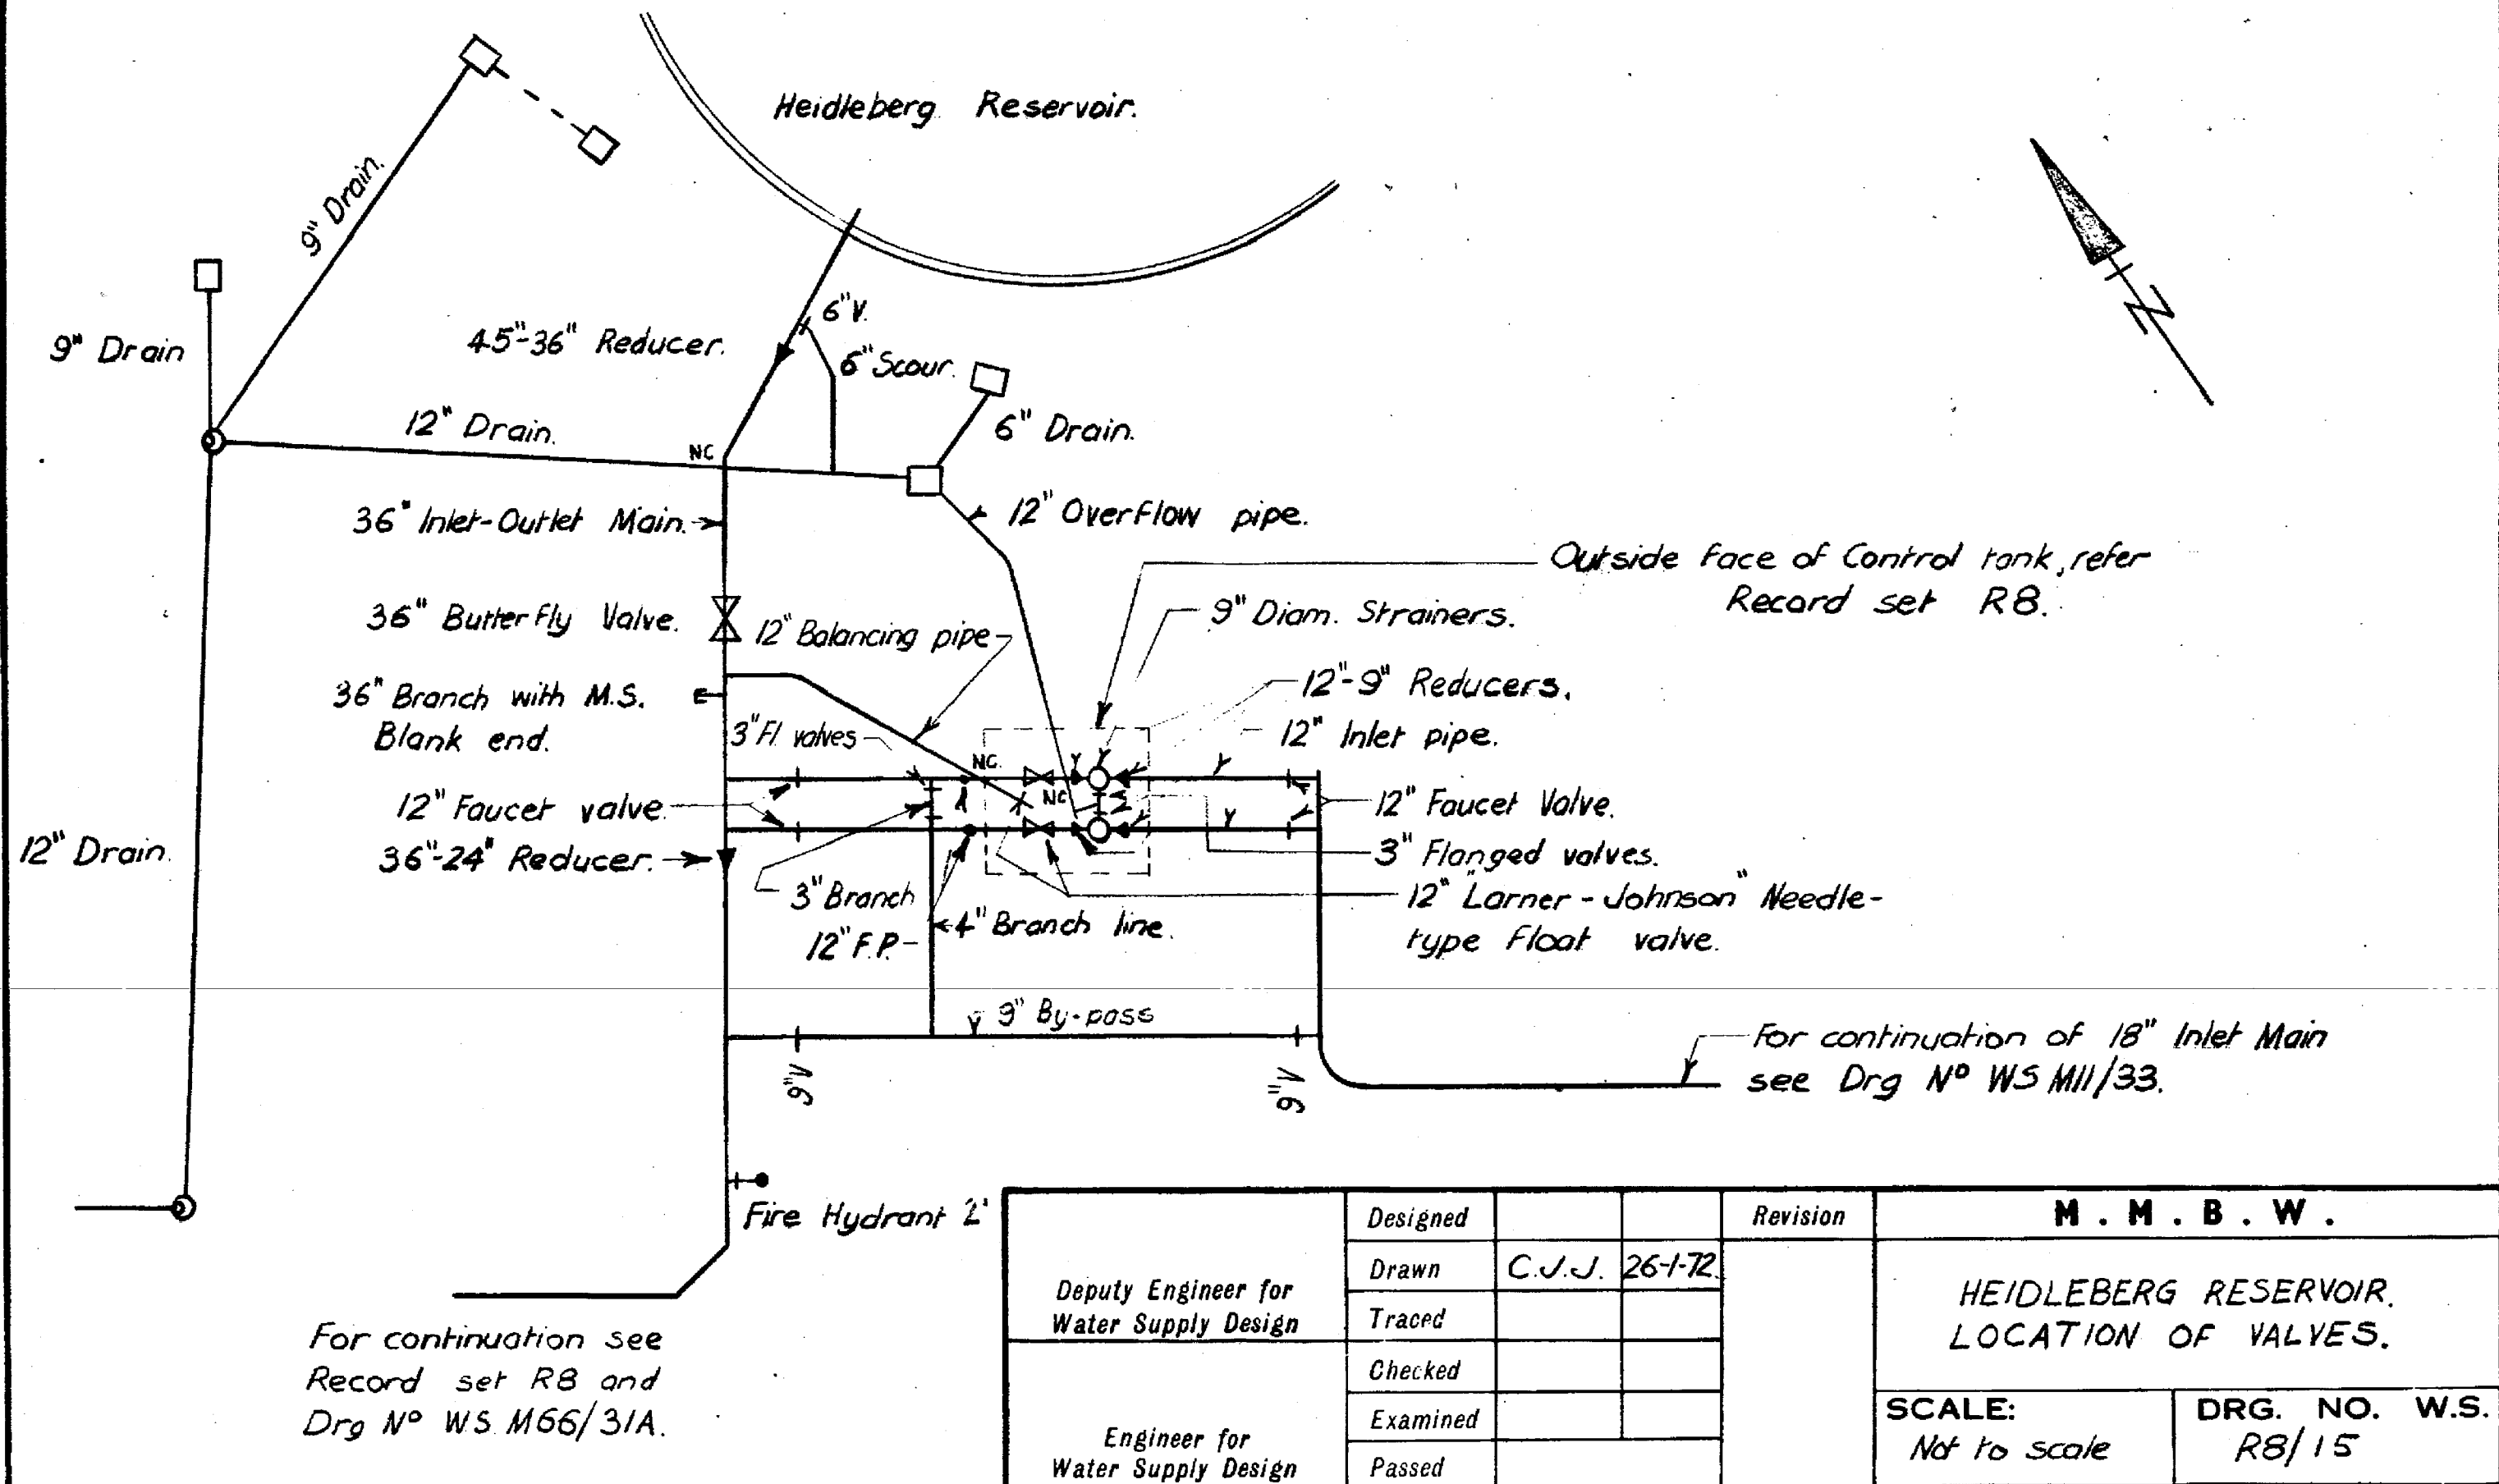 Heidleberg Reservoir.
9" Drain.
9" Drain
45"-36" Reducer.
6"V.
6" Scour.
12" Drain.
NC
6" Drain.
N
36" Inlet-Outlet Main.
12" Overflow pipe.
Outside face of Control tank, refer
Record set R8.
36" Butterfly Valve.
12" Balancing pipe
9" Diam. Strainers.
36" Branch with M.S.
Blank end.
12"-9" Reducers.
3" Fl. valves
12" Inlet pipe.
NC.
NC
12" Faucet valve.
12" Faucet Valve.
12" Drain.
36"-24" Reducer.
3" Flanged valves.
3" Branch
12" F.P.
4" Branch line.
12" "Larner-Johnson" Needle-
type Float valve.
9" By-pass
9"V
9"V
For continuation of 18" Inlet Main
see Drg Nº WS M11/33.
Fire Hydrant 2'
For continuation see
Record set R8 and
Drg Nº WS M66/31A.
Deputy Engineer for
Water Supply Design
Engineer for
Water Supply Design
Designed
Drawn C.J.J. 26-1-72.
Traced
Checked
Examined
Passed
Revision
M.M.B.W.
HEIDLEBERG RESERVOIR.
LOCATION OF VALVES.
SCALE:
Not to scale
DRG. NO. W.S.
R8/15